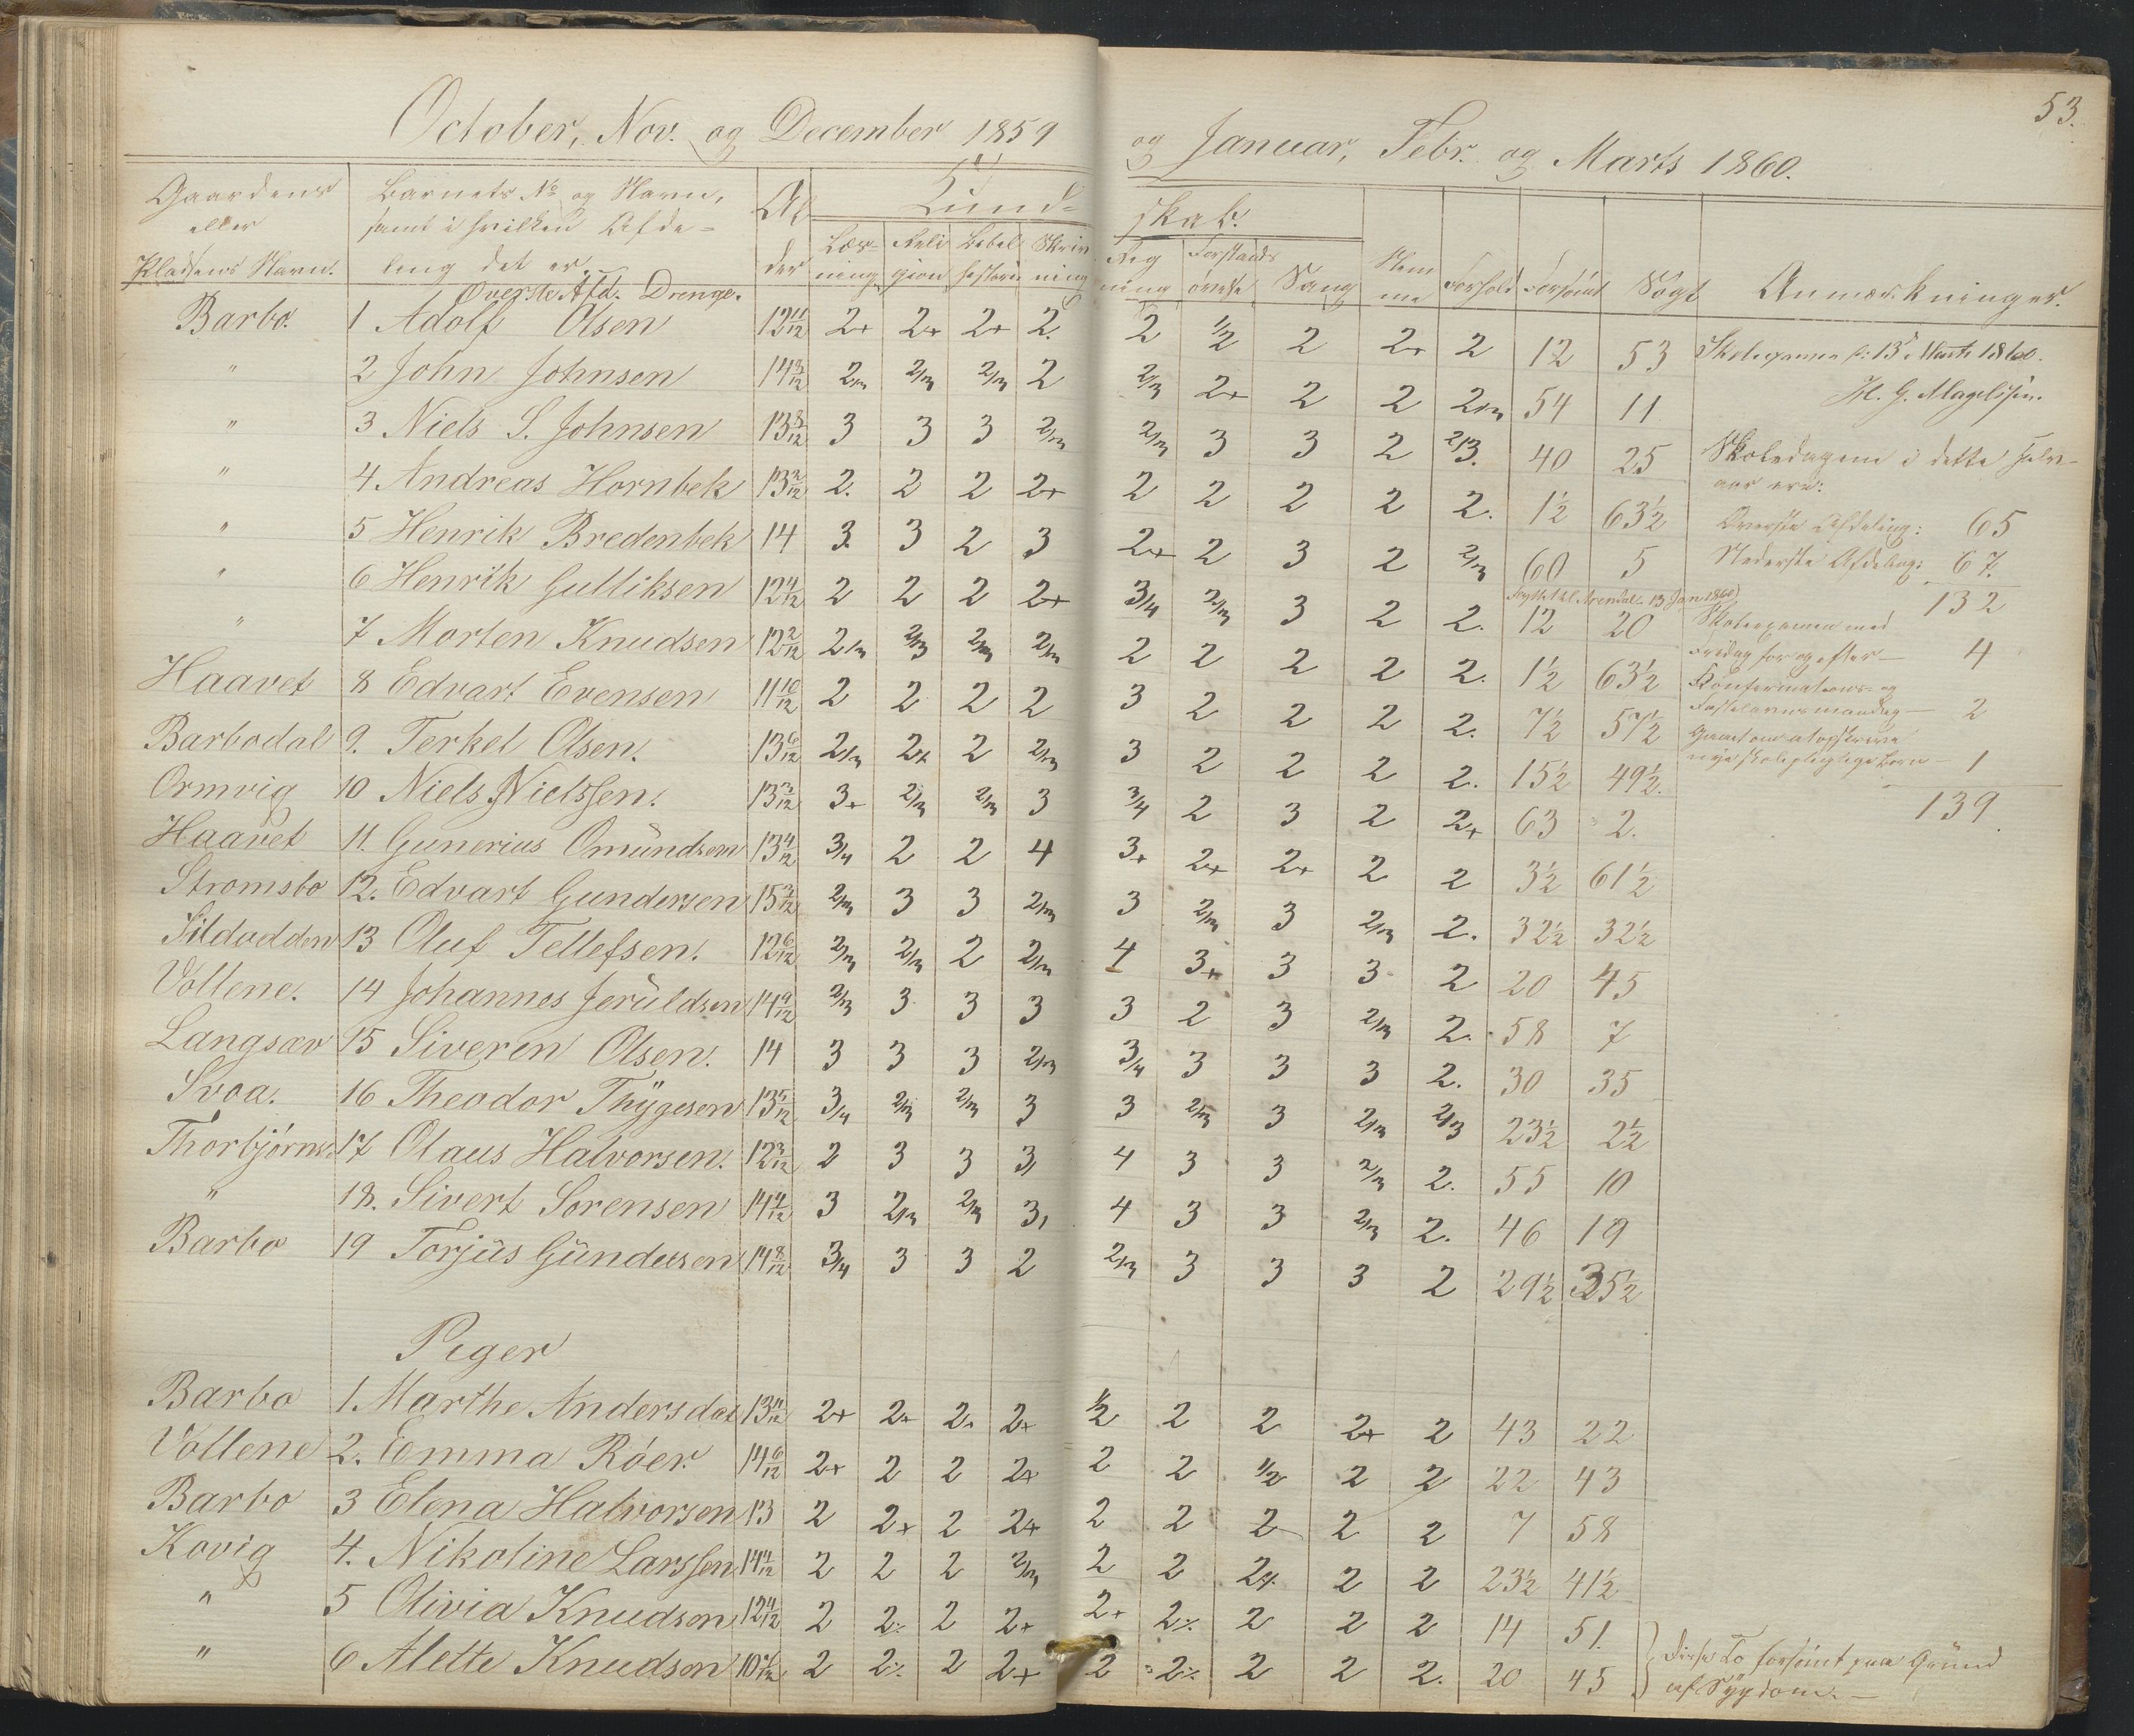 53.
October, Nov. og December 1859 og Januar, Febr. og Marts 1860.
Gaardens eller Pladsens Navn. | Barnets No og Navn, samt i hvilken Afdeling det er. | Alder | Kundskab. | Stemme | Forhold | Forsömt | Sögt | Anmærkninger.
Læsning | Religion | Bibelhistorie | Skrivning | Regning | Forstandsövelse | Sang
Överste Afd. Drenge.
Barbo. 1 Adolf Olsen 12 11/12 2+ 2+ 2+ 2. 2 1/2 2 2+ 2 12 53
" 2 John Johnsen 2/3 2/3 2/3 2 2/3 2+ 2 2 2/3 54 11
" 3 Niels S. Johnsen 13 8/12 3 3 3 2/3 2/3 3 3 2 2/3. 40 25
" 4 Andreas Hornbek 2. 2 2 2+ 2 2 2 2 2. 1½ 63½
" 5 Henrik Bredenbek 14 3. 3 2 3 2+ 2 3 2 2/3 60 5
" 6 Henrik Gulliksen 12 4/12 2 2 2 2+ 3/4 2/3 3 2 2. 12 20
flyttet til Arendal 13 Jan 1860
" 7 Morten Knudsen 12 2/12 2/3 2/3 2/3 2/3 2 2 2 2 2. 1½ 63½
Haavet 8 Edvart Evensen 11 10/12 2 2 2 2 3 2 2 2 2. 7½ 57½
Barbodal 9. Terkel Olsen. 13 6/12 2/3 2+ 2 2/3 3 2 2 2 2. 15½ 49½.
Ormvig 10 Niels Nielssen. 13 3/12 3+ 2/3 2/3 3 3/4 2 3 2 2+ 63 2.
Haavet 11. Gunerius Omündsen 13 4/12 3/4 2 2 4 3+ 2+ 2+ 2 2 3½ 61½
Stromsbo 12. Edvart Gundersen 15 3/12 2/3 3 3 2/3 3 2/3 3 2/3 2. 32½ 32½
Sildodden 13 Oluf Tellefsen. 12 6/12 2/3 2/3 2 2/3 4 3+ 3 3 2 20 45
Vollene. 14 Johannes Jerüldsen 14 9/12 2/3 3 3 3 3 2 3 2/3 2. 58 7
Langsæv 15 Siveren Olsen. 14 3 3 3 2/3 3/4 3 3 3 2. 30 35
Svoa. 16 Theodor Thÿgesen 13 5/12 3/4 2/3 2/3 3 3 2/3 3 2/3 2/3 23½ 2½
Thorbjörns. 17 Olaus Halvorsen. 12 3/12 2 3 3 3 4 3 3 2/3 2. 55 10
" 18. Sivert Sorensen 3 2/3 2/3 3 4 3 3 2/3 2. 46 19
Barbo 19 Torjüs Gündersen 14 8/12 3/4 3 3 2 2/3 3 3 3 2 29½ 35½
Piger
Barbo 1. Marthe Andersdat 13 11/12 2+ 2+ 2+ 2+ 1/2 2 2 2+ 2 43 22
Vollene 2. Emma Röer. 14 6/12 2+ 2 2 2+ 2 2 1/2 2 2 22 43
Barbo 3 Elena Halvorsen 13 2 2+ 2 2+ 2 2 2 2 2 7 58
Kovig 4. Nikoline Larssen 2 2 2 2/3 2 2 2+ 2 2 23½ 41½
" 5 Olivia Knudsen 12 4/12 2 2 2 2+ 2+ 2 2 2 2 14 51.
" 6 Alette Knudsen 2 2 2 2+ 2 2 2 2 2. 20 45
Skoleexamen d: 13de Marts 1860.
H. G. Magelssen.
Skoledagene i dette Halvaar ere:
Överste Afdeling: 65
Nederste Afdeling: 67.
132
Skoleexamen med
Fredag for og efter — 4
Konfirmations- og
Fastelavnsmandag — 2
nye skolepligtige Börn — 1
139.
Disse To forsömt paa Gründ
af Sÿgdom. —